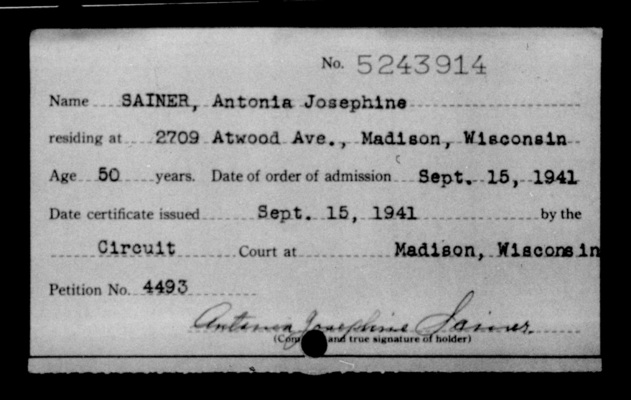 No. 5243914
Name SAINER, Antonia Josephine
residing at 2709 Atwood Ave., Madison, Wisconsin
Age 50 years. Date of order of admission Sept. 15, 1941
Date certificate issued Sept. 15, 1941 by the
Circuit Court at Madison, Wisconsin
Petition No. 4493
Antonia Josephine Sainer.
and true signature of holder)